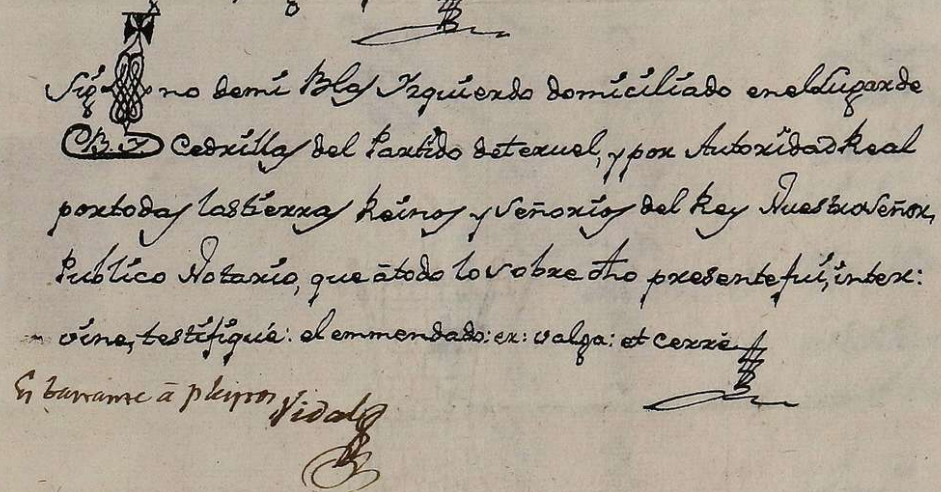 Sig no demi Blas Yzquierdo domiciliado enel Lugar de
B. Y Cedrillas del Partido deteruel, y por Autoridad Real
portodas lastierras Reinos y Señorios del Rey Nuestro Señor,
Publico Notario, que átodo lo sobre dho presente fui, inter:
vine, testifiqué: el emmendado: er: valga: et cerré
Vidal